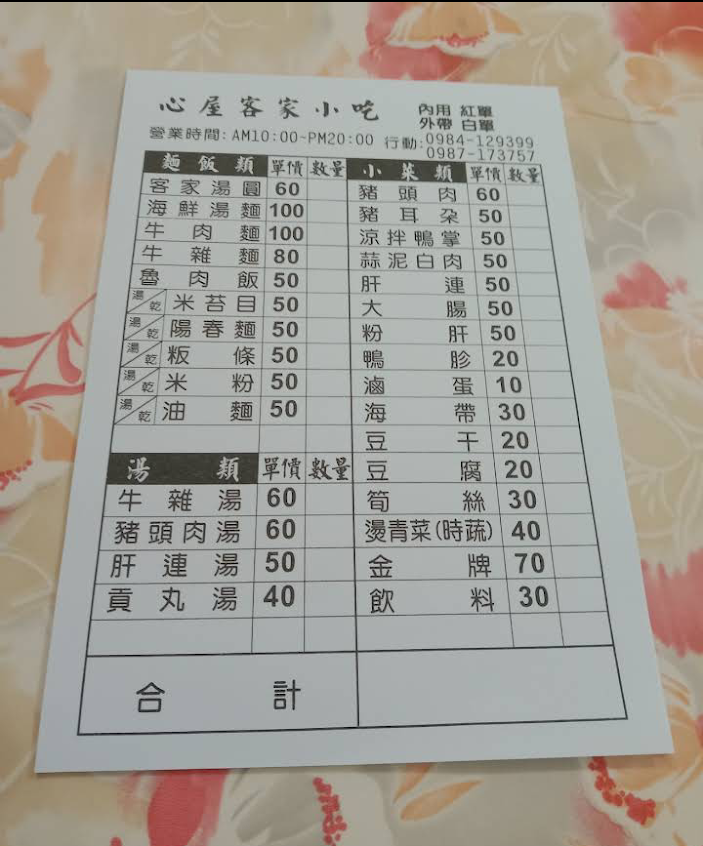 心屋客家小吃
內用 紅單
外帶 白單
營業時間: AM10:00-PM20:00 行動:0984-129399
0987-173757
麵飯類 單價 數量
客家湯圓 60
海鮮湯麵 100
牛肉麵 100
牛雜麵 80
魯肉飯 50
湯/乾 米苔目 50
湯/乾 陽春麵 50
湯/乾 粄條 50
湯/乾 米粉 50
湯/乾 油麵 50
湯類 單價 數量
牛雜湯 60
豬頭肉湯 60
肝連湯 50
貢丸湯 40
小菜類 單價 數量
豬頭肉 60
豬耳朶 50
涼拌鴨掌 50
蒜泥白肉 50
肝連 50
大腸 50
粉肝 50
鴨胗 20
滷蛋 10
海帶 30
豆干 20
豆腐 20
筍絲 30
燙青菜(時蔬) 40
金牌 70
飲料 30
合計